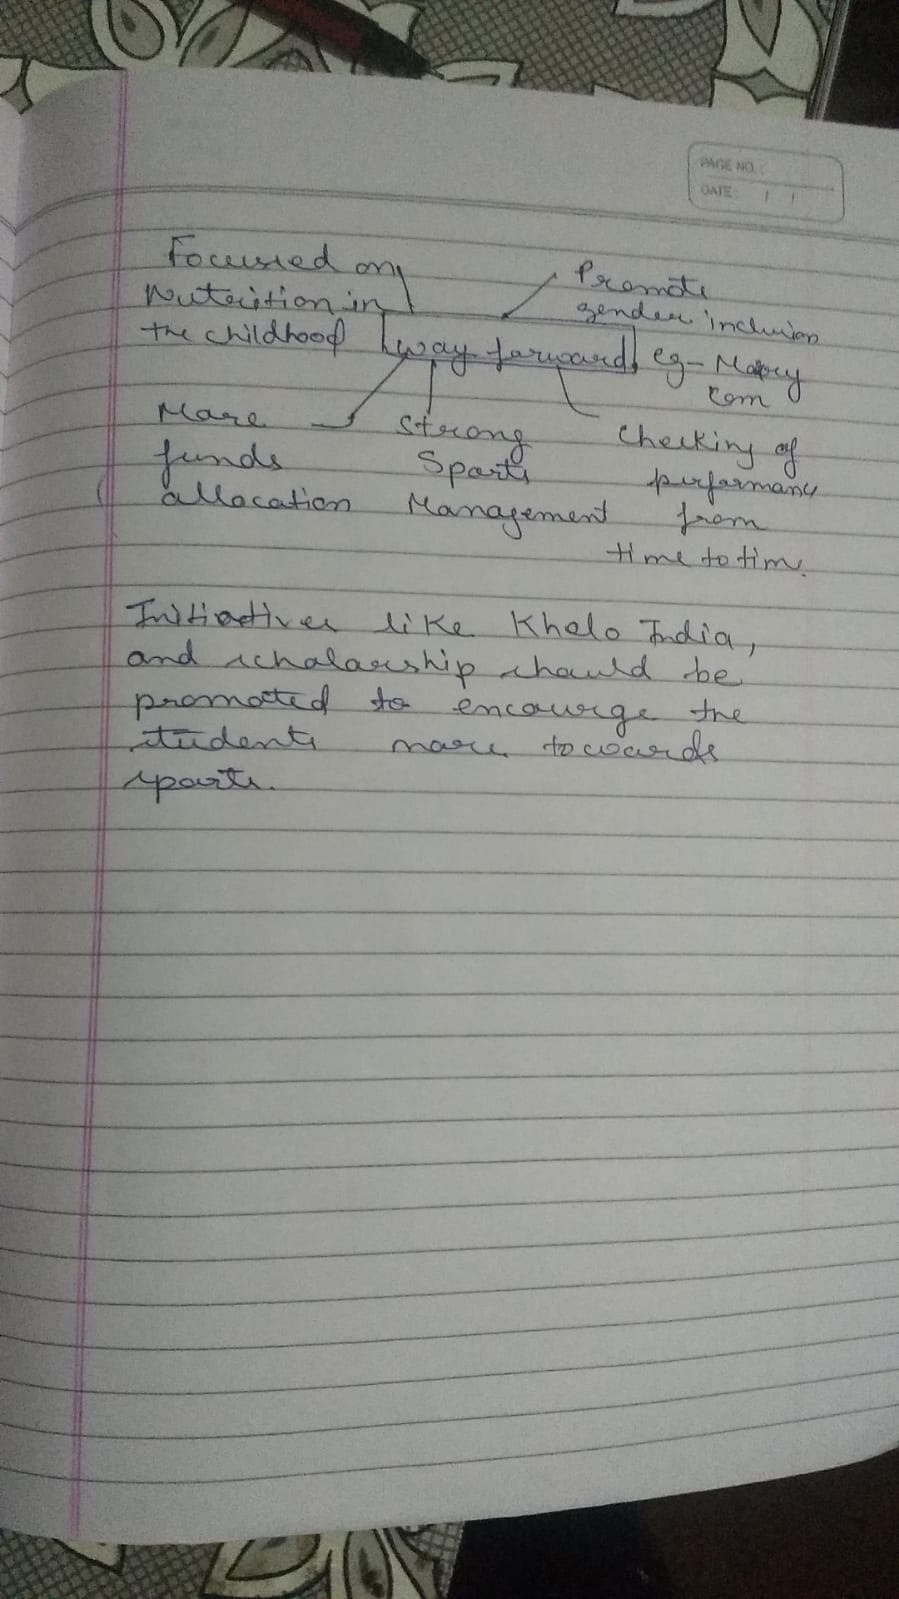 PAGE NO.:
DATE: / /
Focused on
Nutrition in
the childhood
Promote
gender inclusion
eg- Mary
Kom
way forward
More
funds
allocation
Strong
Sports
Management
Checking of
performance
from
time to time.
Initiatives like Khelo India,
and scholarship should be
promoted to encourge the
students more towards
sports.